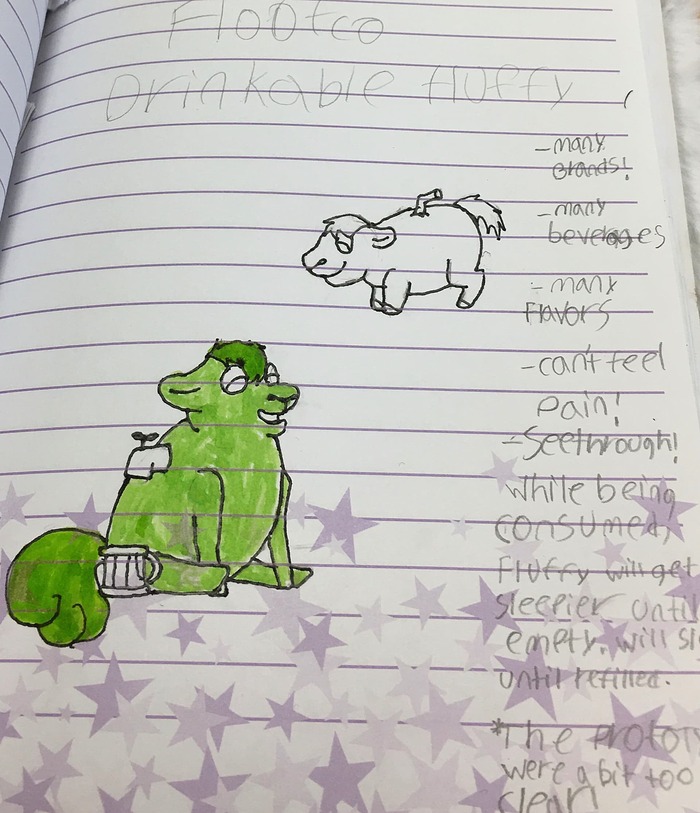 FlooTco
Drinkable fluffy
- many
Brands!
- many
beverages
- many
Flavors
- can't feel
pain!
- Seethrough!
While being
consumed,
Fluffy will get
sleepier until
empty. will sl
until refilled.
*The Protot
were a bit too
clear!